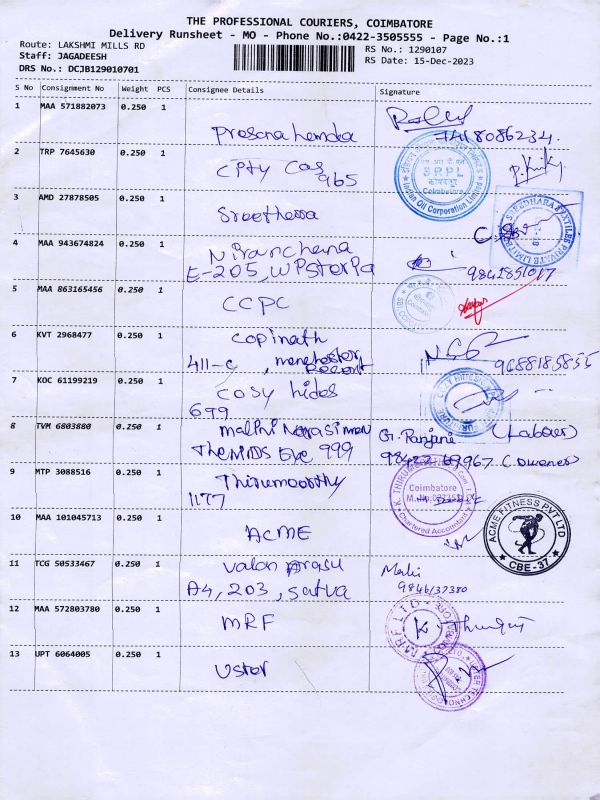 THE PROFESSIONAL COURIERS, COIMBATORE
Delivery Runsheet - MO - Phone No.:0422-3505555 - Page No.:1
Route: LAKSHMI MILLS RD
RS No.: 1290107
Staff: JAGADEESH
RS Date: 15-Dec-2023
DRS No.: DCJB129010701
S No Consignment No Weight PCS Consignee Details Signature
1 MAA 571882073 0.250 1
Prasana hemda
8086234.
2 TRP 7645630 0.250 1
CPty Cas
965
S R P L
Coimbatore
Indian Oil Corporation Limited
3 AMD 27878505 0.250 1
Sreethersa
4 MAA 943674824 0.250 1
Niranchena
E-205, WPsterPa
9841851017
5 MAA 863165456 0.250 1
CCPC
6 KVT 2968477 0.250 1
Copinath
411-C, manchester
Regent
9688185855
7 KOC 61199219 0.250 1
Cosy hides
699
8 TVM 6803880 0.250 1
malini Narasiman
The MDS Eve 999
G. Ranjani (Labour)
98422 69967 (Owener)
9 MTP 3088516 0.250 1
Thirumoorthy
1177
Coimbatore
Chartered Accountant
10 MAA 101045713 0.250 1
ACME
ACME FITNESS PVT LTD
CBE-37
11 TCG 50533467 0.250 1
valan Arasu
A4, 203, satva
Malli
9846137380
12 MAA 572803780 0.250 1
MRF
M.R.F LTD
13 UPT 6064005 0.250 1
Uster